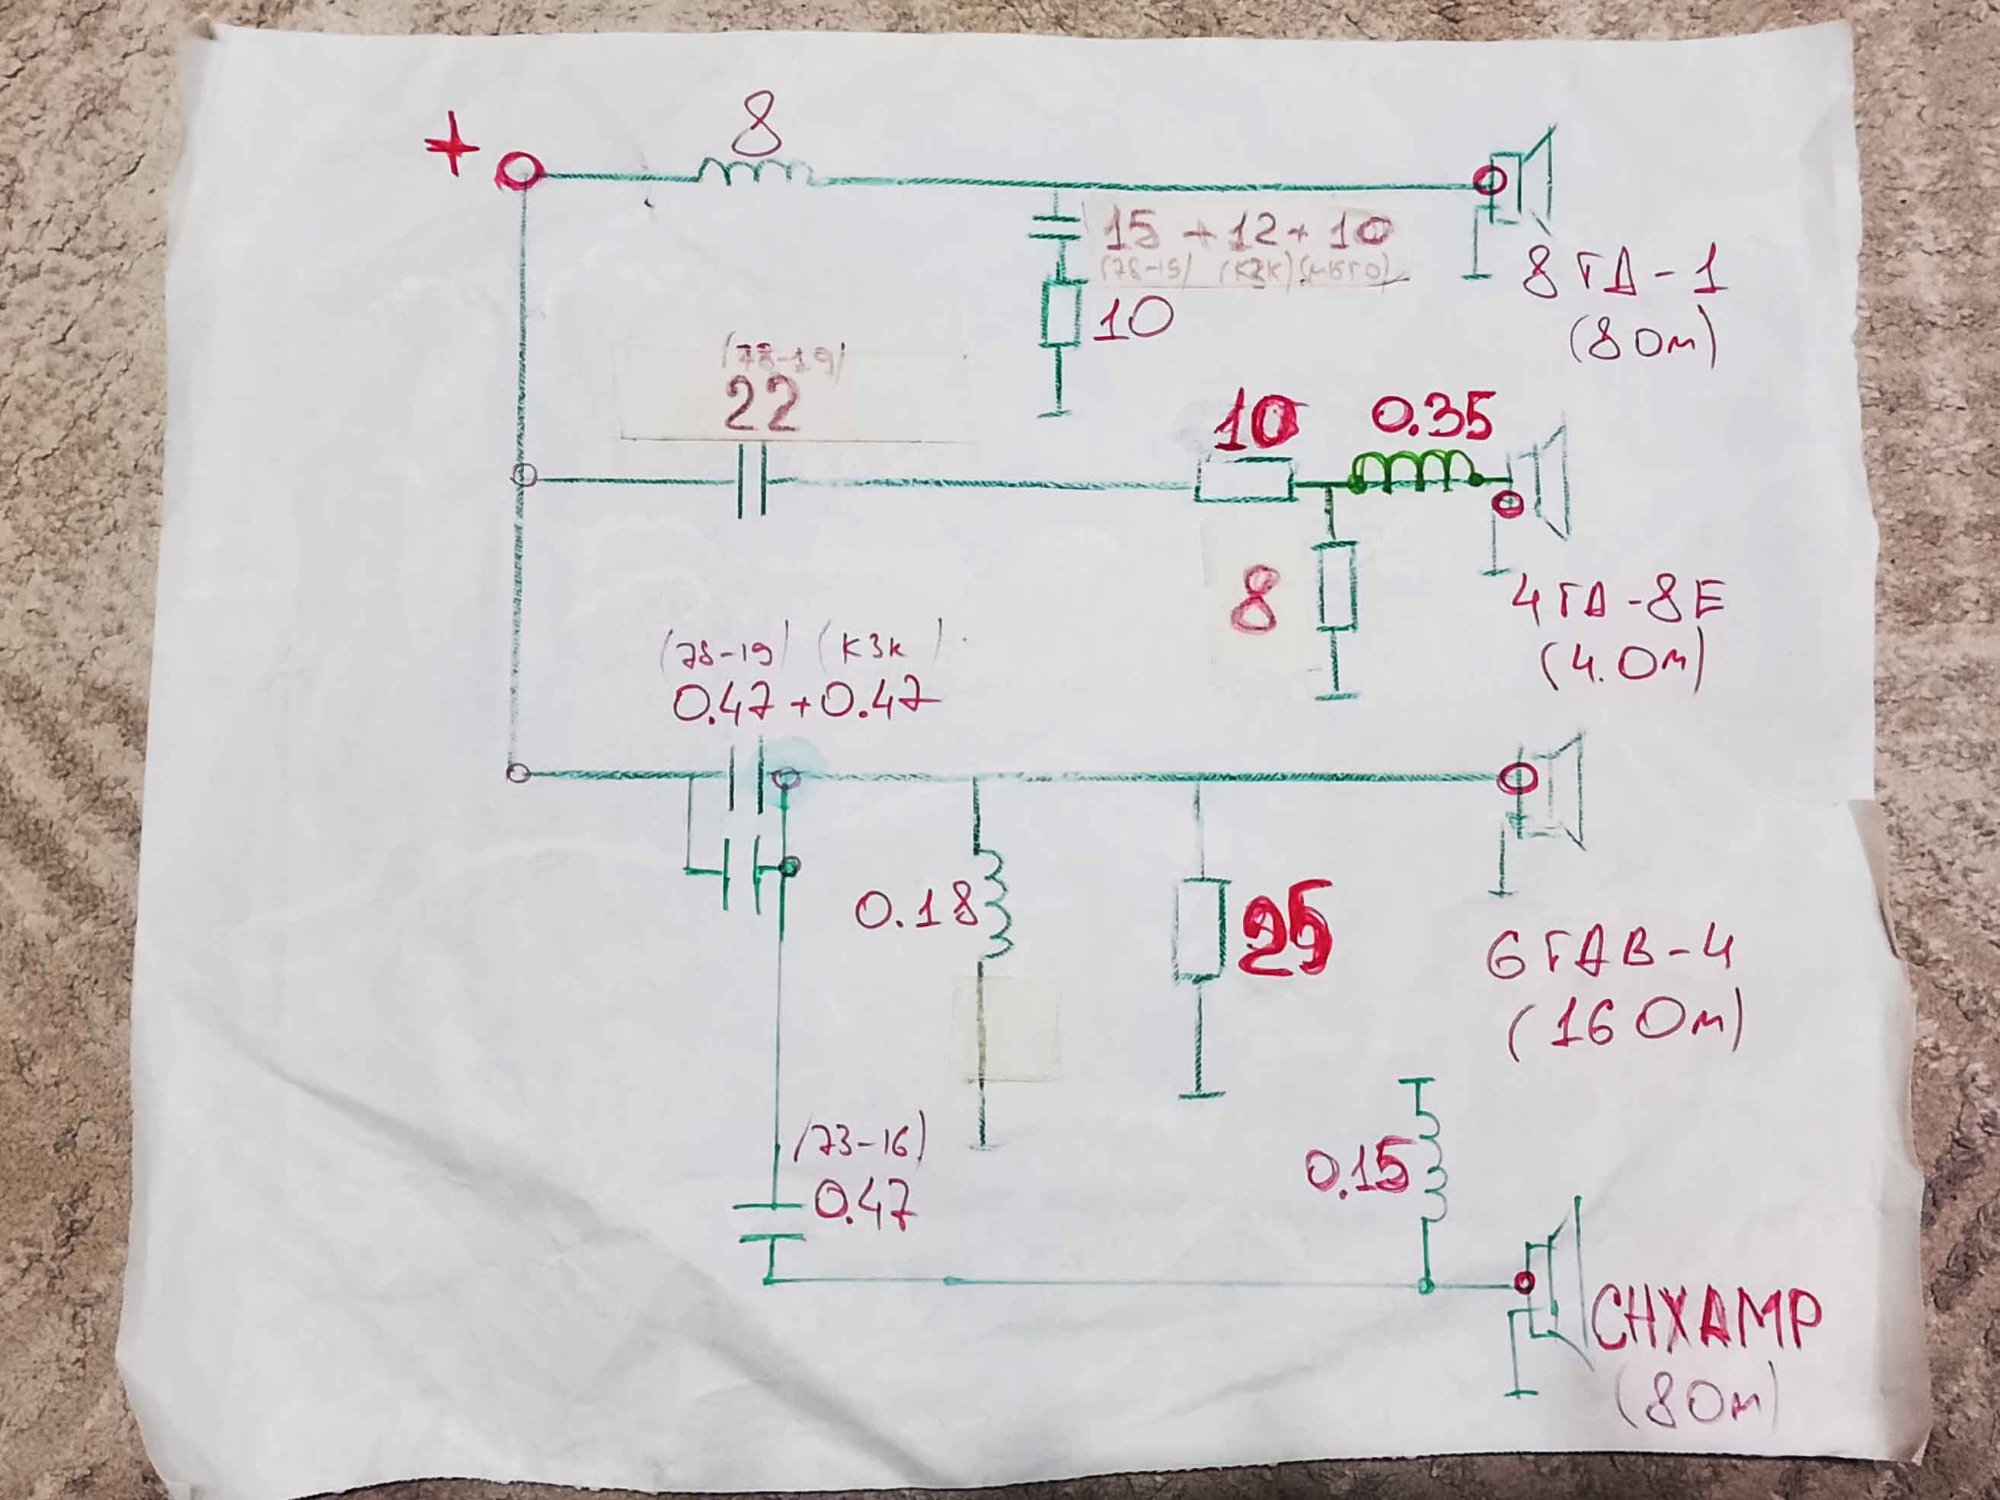 8
+
15 + 12 + 10
(78-19) (К3К) (МБГО)
8ГД-1
10
(8 Ом)
(78-19)
22
10
0.35
8
4ГД-8Е
(4. Ом)
(78-19) (К3К)
0.47 + 0.47
0.18
25
6ГДВ-4
(16 Ом)
(73-16)
0.47
0.15
CHXAMP
(8 Ом)